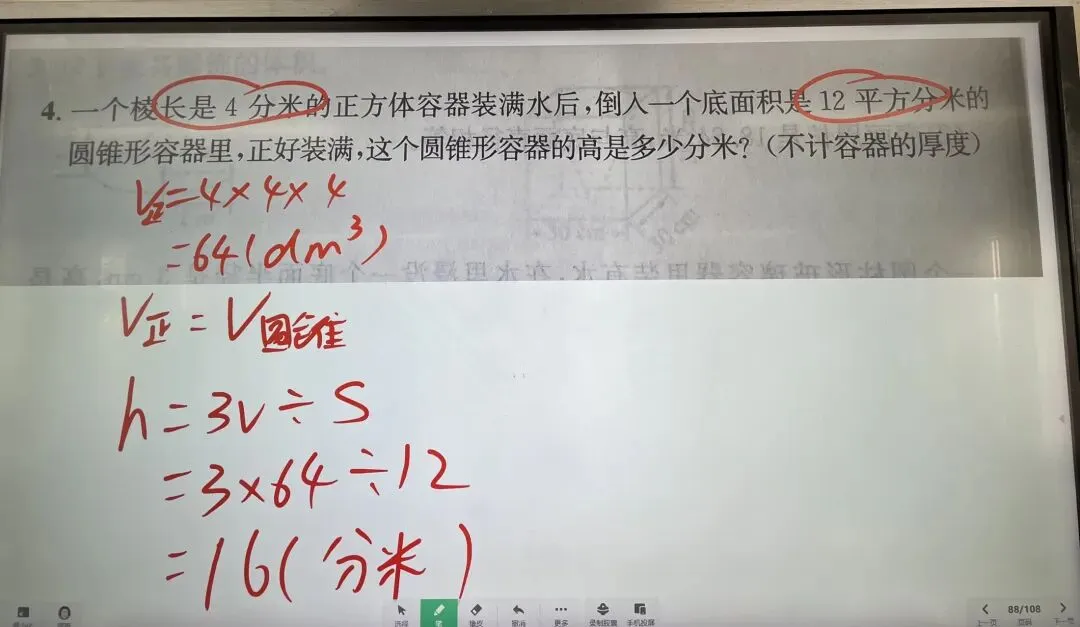 4. 一个棱长是 4 分米的正方体容器装满水后,倒入一个底面积是 12 平方分米的
圆锥形容器里,正好装满,这个圆锥形容器的高是多少分米?(不计容器的厚度)
V正=4×4×4
=64(dm³)
V正=V圆锥
h=3V÷S
=3×64÷12
=16(分米)
选择 笔 橡皮 撤消 更多 录制胶囊 手机投屏
上一页 88/108 页码 下一页